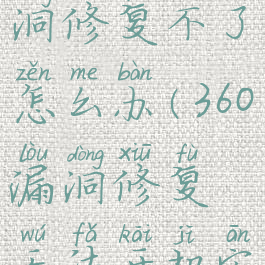 洞修复不了
zěn me bàn
怎么办(360
lòu dòng xiū fù
漏洞修复
wú fǎ kāi jī ān